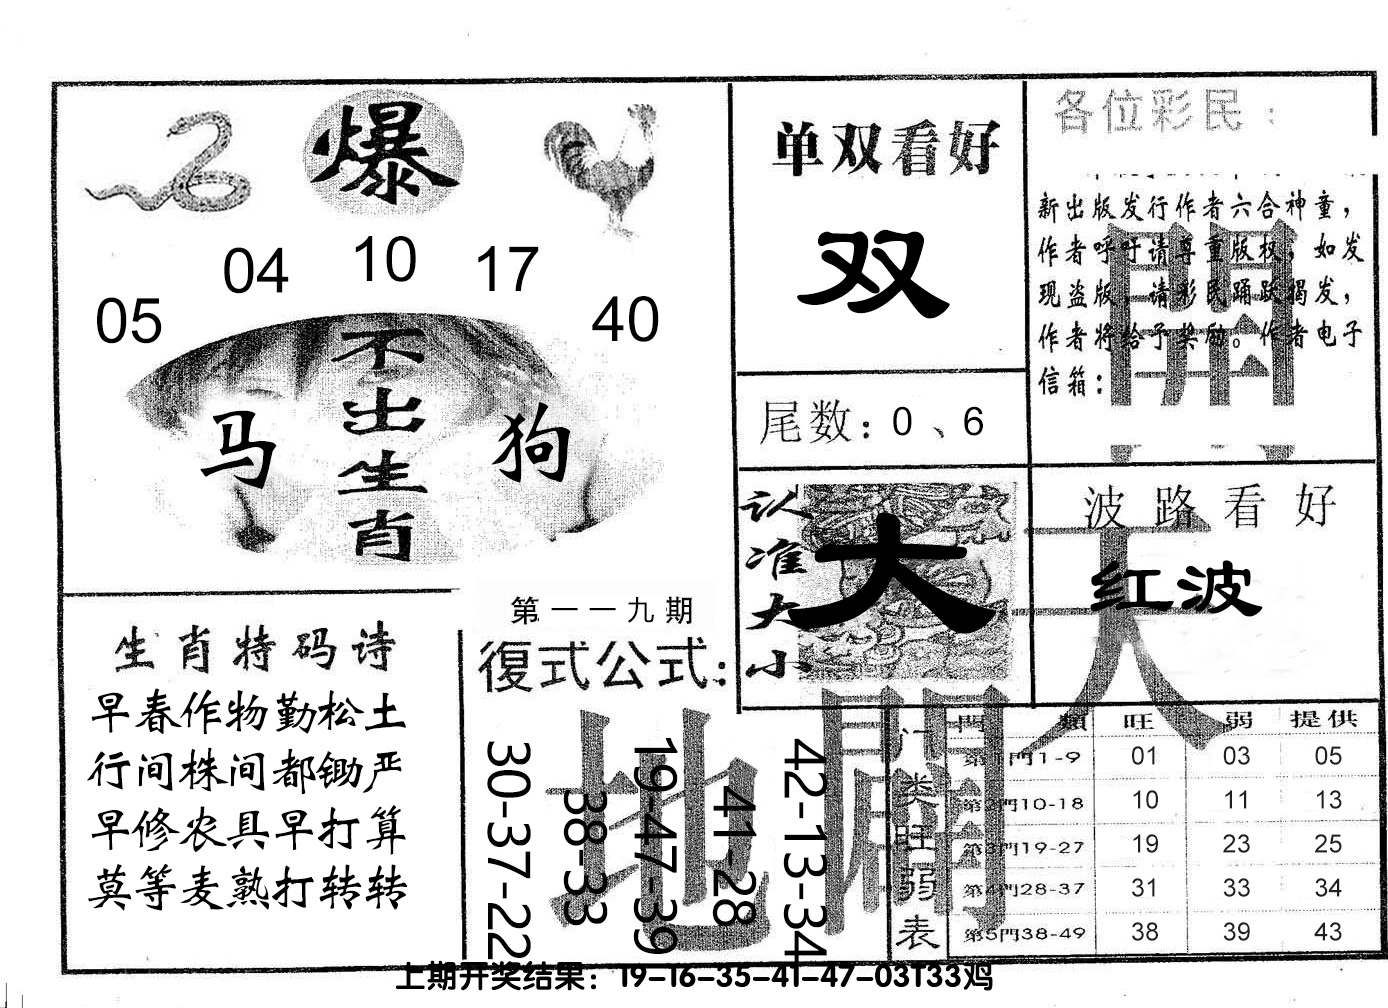 爆
05 04 10 17 40
不出生肖
马 狗
单双看好
双
尾数：0、6
各位彩民：
新出版发行作者六合神童，
作者呼吁请尊重版权，如发
现盗版，请彩民踊跃揭发，
作者将给予奖励。作者电子
信箱：
開
认准大小
大
波路看好
红波
天
生肖特码诗
早春作物勤松土
行间株间都锄严
早修农具早打算
莫等麦熟打转转
第一一九期
復式公式：
30-37-22
38-33
19-47-39
41-28
42-13-34
地
門类旺弱表
門類 旺 弱 提供
第1門1-9 01 03 05
第2門10-18 10 11 13
第3門19-27 19 23 25
第4門28-37 31 33 34
第5門38-49 38 39 43
上期开奖结果：19-16-35-41-47-03T33鸡